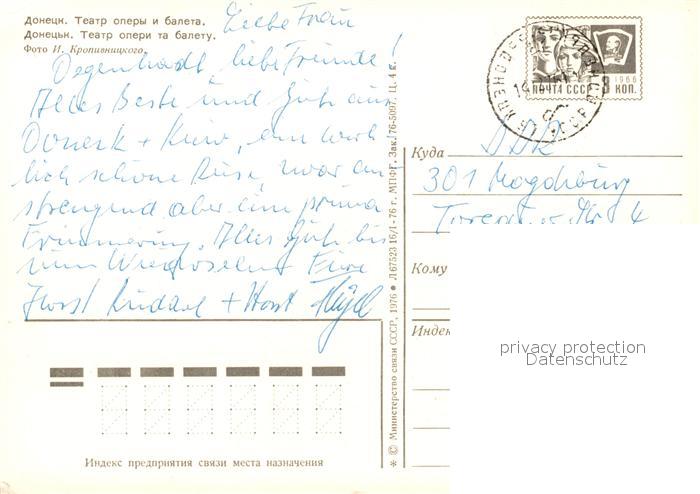 Донецк. Театр оперы и балета.
Донецьк. Театр опери та балету.
Фото И. Кропивницкого.
Liebe Frau
Degenhardt, liebe Freunde!
Alles Beste und Gute aus
Donezk + Kiew, ein wirk
lich schöne Reise, zwar an
strengend aber eine prima
Erinnerung. Alles Gute bis
zum Wiedersehen Eure
Horst + Horst
1966
ПОЧТА СССР 3 КОП.
Куда DDR
301 Magdeburg
Str 4
Кому
Индекс
privacy protection
Datenschutz
* © Министерство связи СССР, 1976 ● Л 67523 16/I-76 г. МПФГ. Зак. 76-5097. Ц. 4 к.
Индекс предприятия связи места назначения